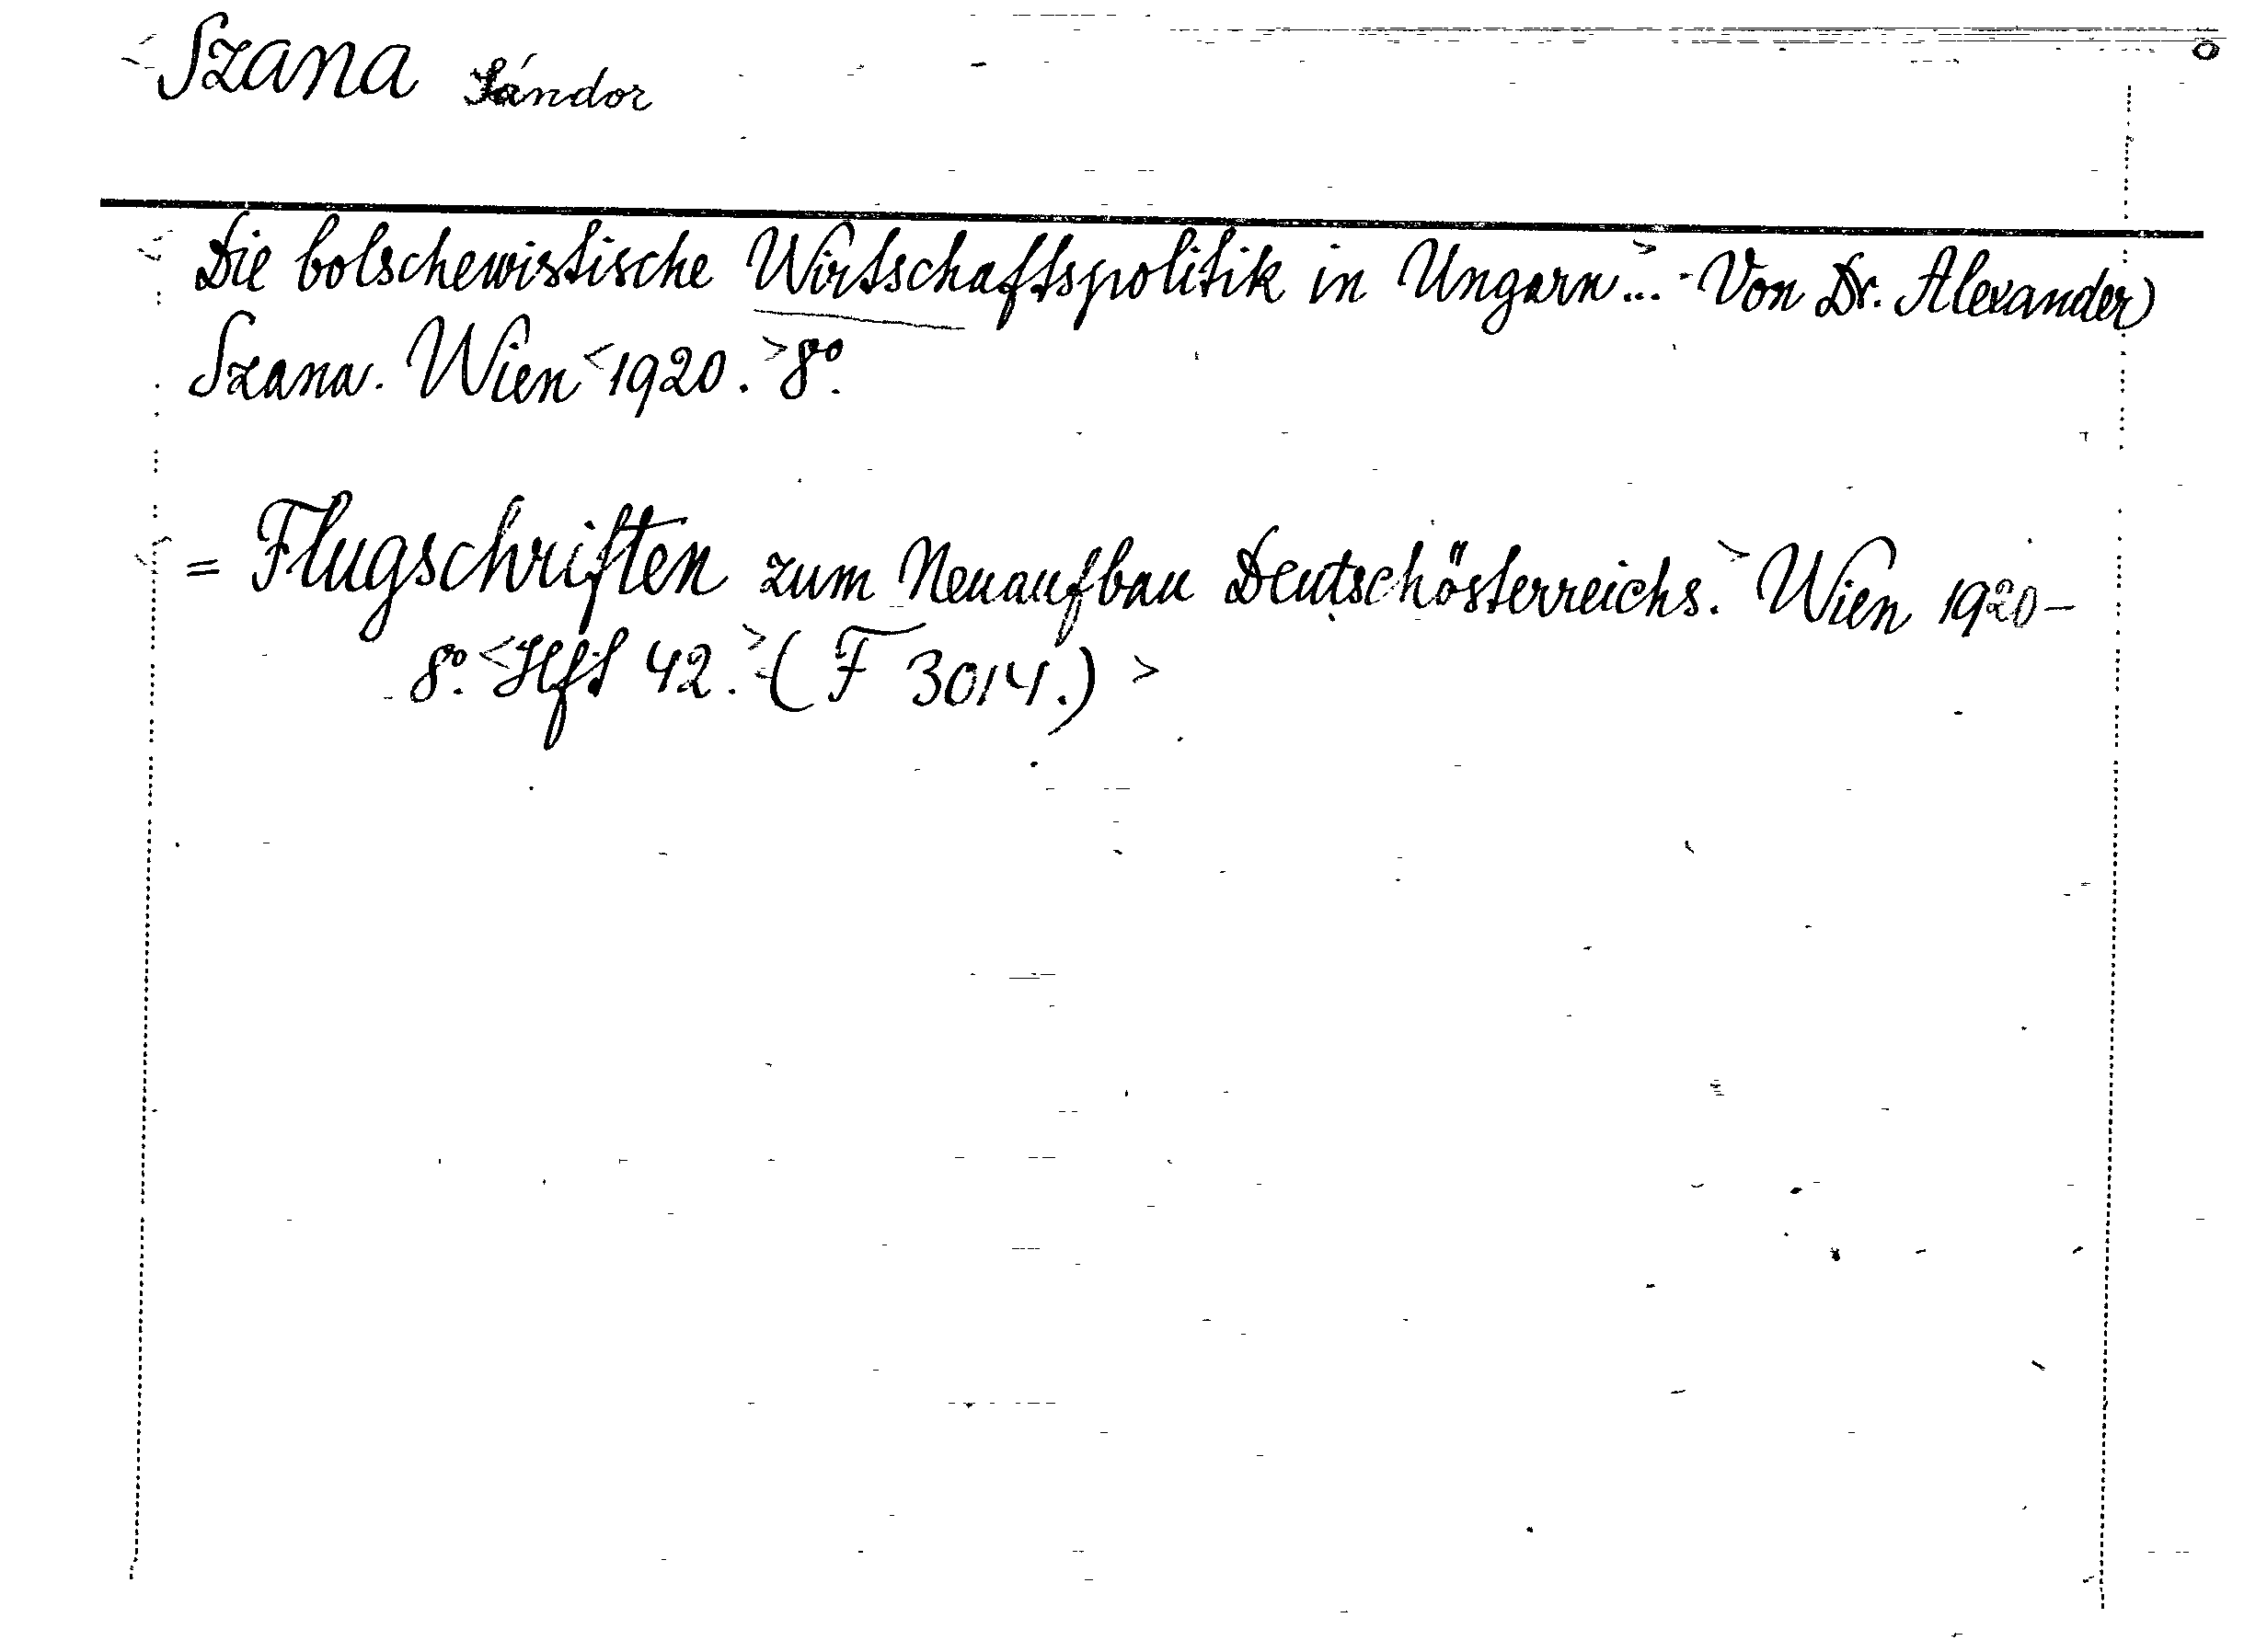 <Szana Sándor
<Die bolschewistische Wirtschaftspolitik in Ungarn...> - Von Dr. Alexander
Szana. Wien <1920.> 8º.
<= Flugschriften zum Neuaufbau Deutschösterreichs.> Wien 1920-
8º. <Hft 42.> (F 3014.) >